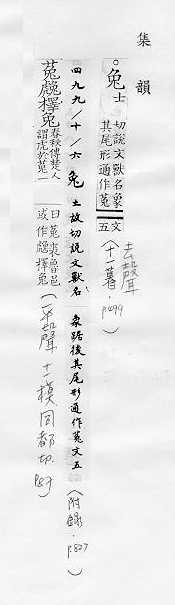 集韻
。兔 土 切說文獸名象
其尾形通作菟
文五
(十一暮.p499)
去聲
四九九/十/六 兔 土故切說文獸名 象踞後其尾形通作菟文五 (附錄.p.827)
菟䖘檡兔 春秋傳楚人
謂虎於菟一
曰菟裘魯邑
或作䖘檡兔
(平聲 十一模 同都切 p.87)